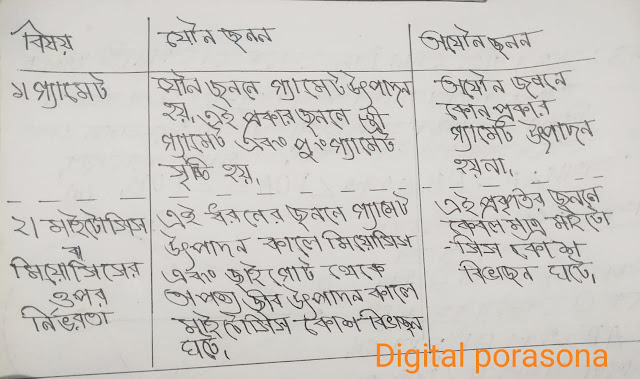 বিষয়
যৌন জনন
অযৌন জনন
১। গ্যামেট
যৌন জননে গ্যামেট উৎপাদন
হয়, এই প্রকার জননে স্ত্রী
গ্যামেট এবং পুং গ্যামেট
সৃষ্টি হয়,
অযৌন জননে
কোন প্রকার
গ্যামেট উৎপাদন
হয়না,
২। মাইটোসিস
বা
মিয়োসিসের
ওপর
নির্ভরতা
এই ধরনের জননে গ্যামেট
উৎপাদন কালে মিয়োসিস
এবং জাইগোট থেকে
অপত্য জীব উৎপাদন কালে
মাইটোসিস কোশ বিভাজন
ঘটে,
এই প্রকৃতির জননে
কেবল মাত্র মাইটো
-সিস কোশ
বিভাজন ঘটে,
Digital porasona